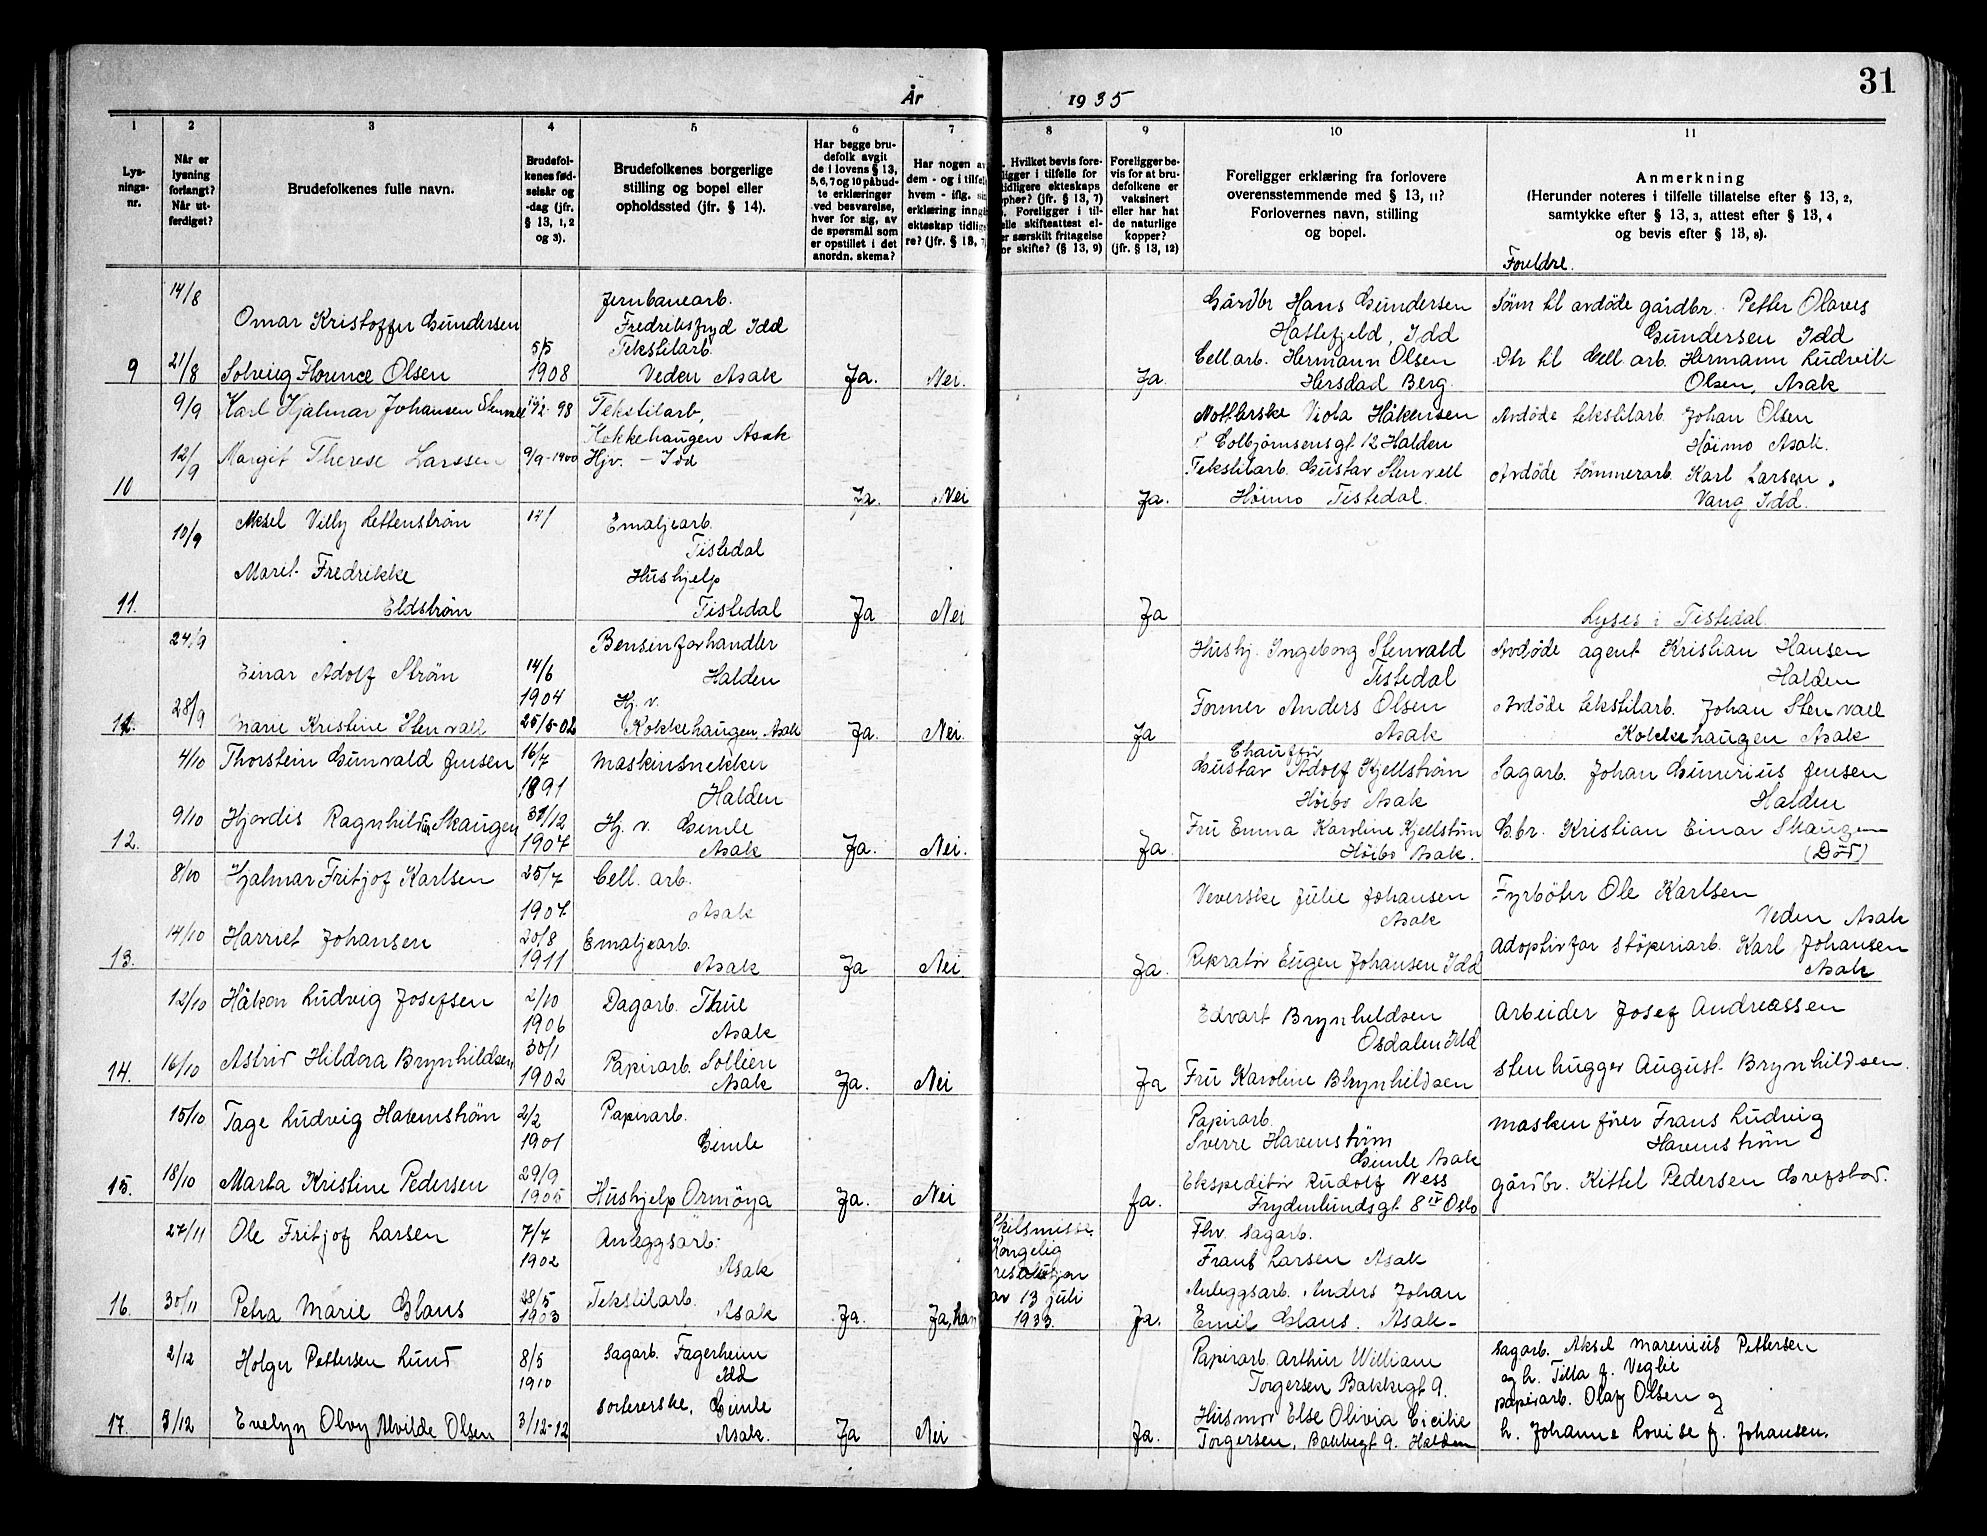 31
År 1935
1 2 3 4 5 6 7 8 9 10 11
Lys-
nings-
nr.
Når er
lysning
forlangt?
Når ut-
ferdiget?
Brudefolkenes fulle navn.
Brudefol-
kenes fød-
selsår og
-dag (jfr.
§ 13, 1, 2
og 3).
Brudefolkenes borgerlige
stilling og bopel eller
opholdssted (jfr. § 14).
Har begge bru-
defolk avgit
de i lovens § 13,
5, 6, 7 og 10 påbud-
te erklæringer
ved besvarelse,
hver for sig, av
de spørsmål som
er opstillet i det
anordn. skema?
Har nogen av
dem - og i tilfelle
hvem - iflg. si
erklæring inngå
ekteskap tidlige
re? (jfr. § 13, 7
Hvilket bevis fore-
ligger i tilfelle for
tidligere ekteskaps
ophør? (jfr. § 13, 7)
Foreligger i til-
elle skifteattest el-
er særskilt fritagelse
or skifte? (§ 13, 9)
Foreligger be-
vis for at bru-
defolkene er
vaksinert
eller har hat
de naturlige
kopper?
(jfr. § 13, 12)
Foreligger erklæring fra forlovere
overensstemmende med § 13, 11?
Forlovernes navn, stilling
og bopel.
Anmerkning
(Herunder noteres i tilfelle tillatelse efter § 13, 2,
samtykke efter § 13, 3, attest efter § 13, 4
og bevis efter § 13, 8).
Foreldre.
9 14/8 21/8
Omar Kristoffer Gundersen
Solveig Florence Olsen
5/5
1908
Jernbanearb.
Fredriksfryd Idd
Tekstilarb.
Veden Asak
Ja. Nei. Ja.
Gårdbr Hans Gundersen
Hattefjeld, Idd
Cell arb. Hermann Olsen
Hersdael Berg.
Sønn til avdøde gårdbr. Petter Olaves
Gundersen Idd
Dtr til Cell arb. Hermann Ludvik
Olsen, Asak
10 9/9 12/9
Karl Hjalmar Johansen Stenvall
Margit Therese Larssen
98
9/9-1900
Tekstilarb,
Kokkehaugen Asak
Hjv. - Idd
Ja. Nei Ja.
Viola Håkensen
Colbjørnsensgt 12 Halden
Tekstilarb. Gustav Stenvell
Høimo Tistedal.
Avdøde tekstilarb. Johan Olsen
Høimo Asak.
Avdøde tømmerarb. Karl Larsen,
Vang Idd.
11. 10/9
Aksel Villy Lettenstrøm
Marit Fredrikke
Eldstrøm
Emaljearb.
Tistedal
Hushjelp
Tistedal
Ja Nei Ja
Lyses i Tistedal.
24/9 28/9
Einar Adolf Strøm
Marie Kristine Stenvall
14/6
1904
25/5-02
Bensinforhandler
Halden
Hj. v.
Kokkehaugen, Asak
Ja. Nei. Ja
Hushj. Ingeborg Stenvald
Tistedal
Former Anders Olsen
Asak
Avdøde agent Kristian Hansen
Halden
Avdøde tekstilarb. Johan Stenvall
Kokkehaugen Asak
12. 4/10 9/10
Thorstein Gunvald Jensen
Hjørdis Ragnhild Skaugen
16/7
1891
31/12
1907
Maskinsnekker
Halden
Hj. v. Gimle
Asak
Ja. Nei. Ja.
Chauffør
Gustav Adolf Kjellstrøm
Høibo Asak
Fru Emma Karoline Kjellstrøm
Høibo Asak.
Sagarb. Johan Gunerius Jensen
Halden
G.br. Kristian Einar Skaugen
(Død)
13. 8/10 14/10
Hjalmar Fritjof Karlsen
Harriet Johansen
25/7
1907
20/8
1911
Cell. arb.
Asak
Emaljearb.
Asak
Ja Nei. Ja.
Veverske Julie Johansen
Asak
Reparatør Eugen Johansen Idd
Fyrbøter Ole Karlsen
Veden Asak
Adoptivfar støperiarb. Karl Johansen
Asak
14. 12/10 16/10
Håkon Ludvig Josefsen
Astrid Hildora Brynhildsen
2/10
1906
30/1
1902
Dagarb. Thue
Asak
Papirarb. Sollien
Asak
Ja. Nei Ja
Edvart Brynhildsen
Osdalen Idd
Fru Karoline Brynhildsen
Arbeider Josef Andreassen
Stenhugger August Brynhildsen.
15. 15/10 18/10
Tage Ludvig Havenstrøm
Marta Kristine Pedersen
2/2
1901
29/9
1905
Papirarb.
Gimle
Hushjelp Ormøya
Ja. Nei Ja.
Papirarb.
Sverre Havenstrøm
Gimle Asak
Ekspeditør Rudolf Ness
Frydenlundsgt 8 IV Oslo
Maskenfører Frans Ludvig
Havenstrøm
gårdbr. Kittel Pedersen Grefsbod.
16. 27/11 30/11
Ole Fritjof Larsen
Petra Marie Glans
7/7
1902
28/5
1903
Anleggsarb.
Asak
Tekstilarb.
Asak
Ja. Ja, han
Skilsmisse.
Kongelig
resolusjon
av 13 juli
1933.
Ja.
Fhv. sagarb.
Frans Larsen Asak
Anleggsarb. Anders Johan
Emil Glans. Asak.
17. 2/12 3/12
Holger Pettersen Lund
Evelyn Olvy Alvilde Olsen
8/5
1910
3/12-12
Sagarb. Fagerheim
Idd
Sortererske, Gimle
Asak.
Ja Nei Ja.
Papirarb. Arthur William
Torgersen Bakkegt 9.
Husmor Else Olivia Cicilie
Torgersen, Bakkegt 9. Halden
Sagarb. Aksel Marenius Pettersen
og h. Tilla f. Veglie
papirarb. Olaf Olsen og
h. Johanne Lovise f. Johansen.